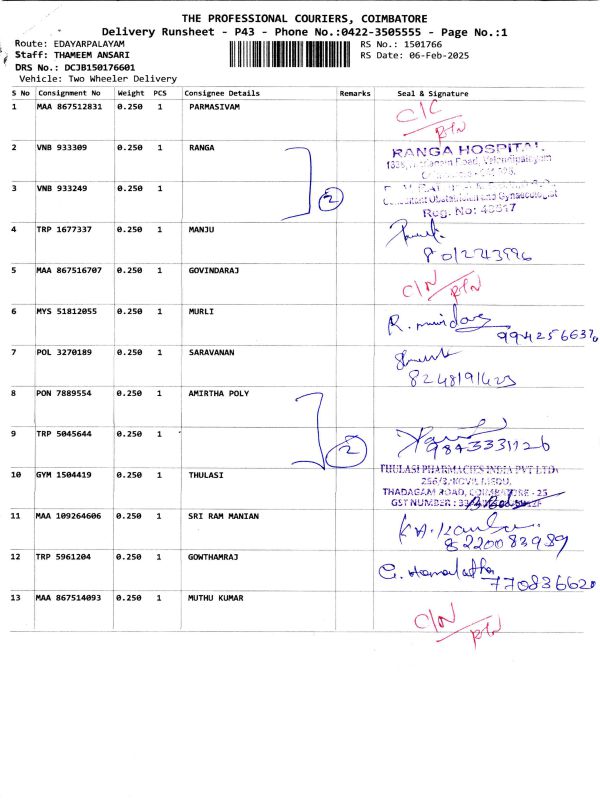 THE PROFESSIONAL COURIERS, COIMBATORE
Delivery Runsheet - P43 - Phone No.:0422-3505555 - Page No.:1
Route: EDAYARPALAYAM RS No.: 1501766
Staff: THAMEEM ANSARI RS Date: 06-Feb-2025
DRS No.: DCJB150176601
Vehicle: Two Wheeler Delivery
S No Consignment No Weight PCS Consignee Details Remarks Seal & Signature
1 MAA 867512831 0.250 1 PARMASIVAM C/C
RTN
2 VNB 933309 0.250 1 RANGA RANGA HOSPITAL
Road, Velandipalayam
3 VNB 933249 0.250 1 2
Consultant Obstetrician and Gynaecologist
Reg. No:
4 TRP 1677337 0.250 1 MANJU
5 MAA 867516707 0.250 1 GOVINDARAJ C/N RTN
6 MYS 51812055 0.250 1 MURLI R.
9942566376
7 POL 3270189 0.250 1 SARAVANAN
8248191423
8 PON 7889554 0.250 1 AMIRTHA POLY
9 TRP 5045644 0.250 1 2 9843331126
10 GYM 1504419 0.250 1 THULASI THULASI PHARMACIES INDIA PVT LTD
THADAGAM ROAD, COIMBATORE - 25
GST NUMBER : 33
11 MAA 109264606 0.250 1 SRI RAM MANIAN
8220083989
12 TRP 5961204 0.250 1 GOWTHAMRAJ G. Hemalatha
770836620
13 MAA 867514093 0.250 1 MUTHU KUMAR C/N
RTN